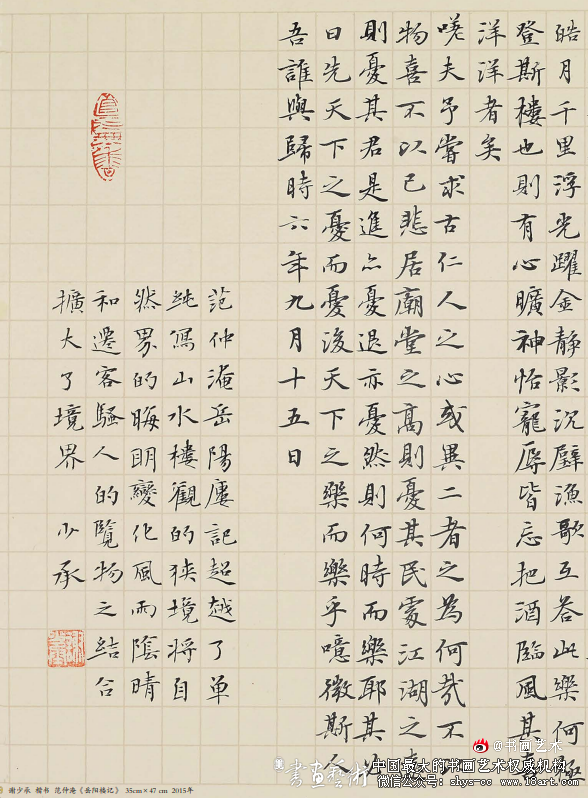 皓月千里浮光躍金靜影沉璧漁歌互答此樂何極
登斯樓也則有心曠神怡寵辱皆忘把酒臨風其喜
洋洋者矣
嗟夫予嘗求古仁人之心或異二者之為何哉不以
物喜不以己悲居廟堂之高則憂其民處江湖之遠
則憂其君是進亦憂退亦憂然則何時而樂耶其必
曰先天下之憂而憂後天下之樂而樂乎噫微斯人
吾誰與歸時六年九月十五日
范仲淹岳陽廔記超越了單
純寫山水樓觀的狹境將自
然界的晦明變化風雨陰晴
和遷客騷人的覽物之結合
擴大了境界 少承
@书画艺术
書画藝術
中国最大的书画艺术权威机构
微信公众号: shys-cc
谢少承 楷书 范仲淹《岳阳楼记》 35cm×47 cm 2015年